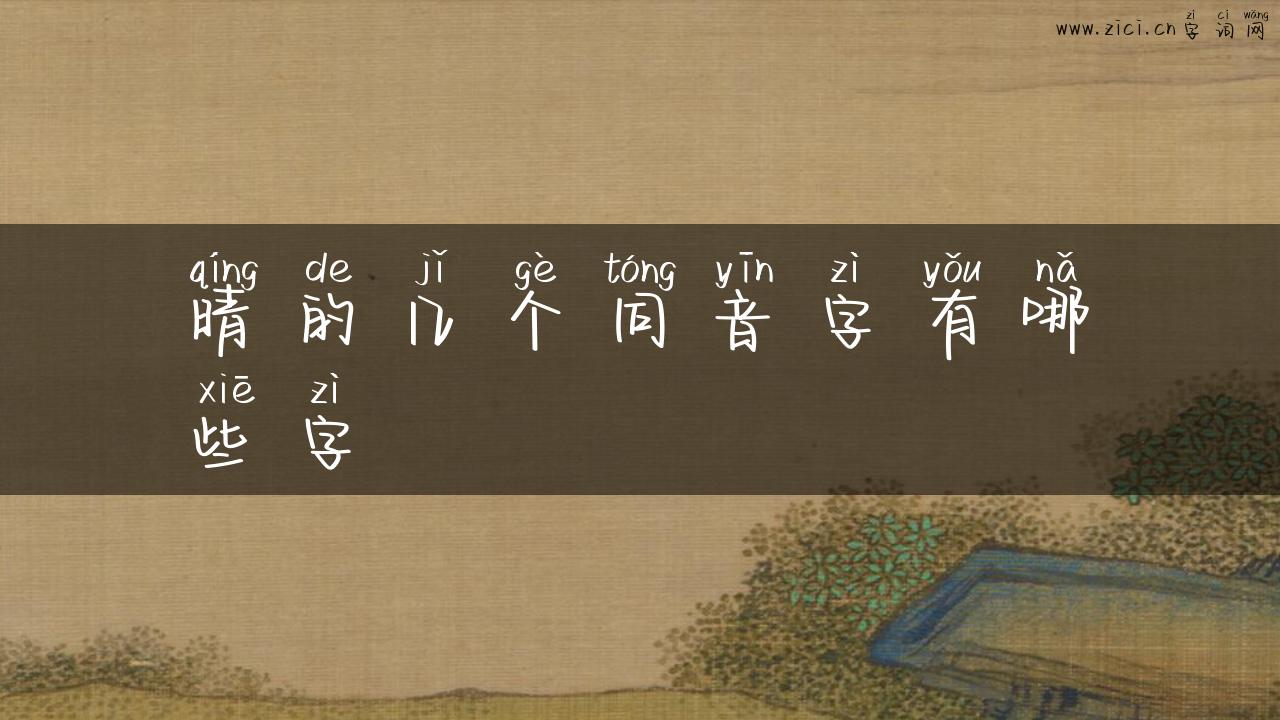 zì cí wǎng
www.zici.cn 字 词 网
qíng de jǐ gè tóng yīn zì yǒu nǎ
晴 的 几 个 同 音 字 有 哪
xiē zì
些 字